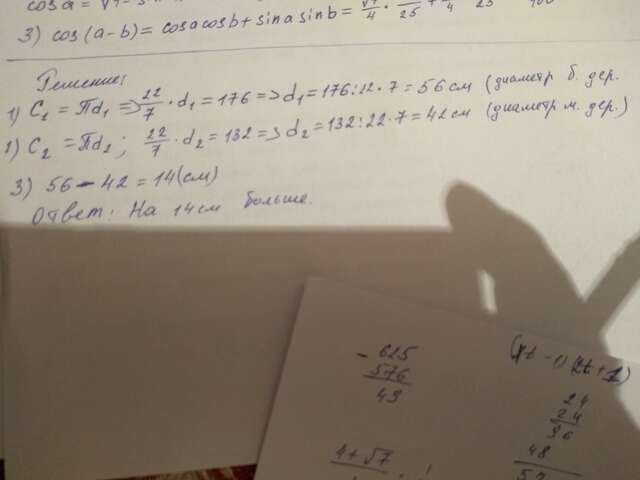 cos a =
3) cos (a-b) = cosacosb + sinasinb =
Решение:
1) C₁ = Пd₁ => 22/7 · d₁ = 176 => d₁ = 176:22·7 = 56 см (диаметр б. дер.
2) C₂ = Пd₂ ; 22/7 · d₂ = 132 => d₂ = 132:22·7 = 42 см (диаметр м. дер.)
3) 56 - 42 = 14 (см)
Ответ: На 14 см больше.
- 625
576
49
24
24
96
48
4+√7